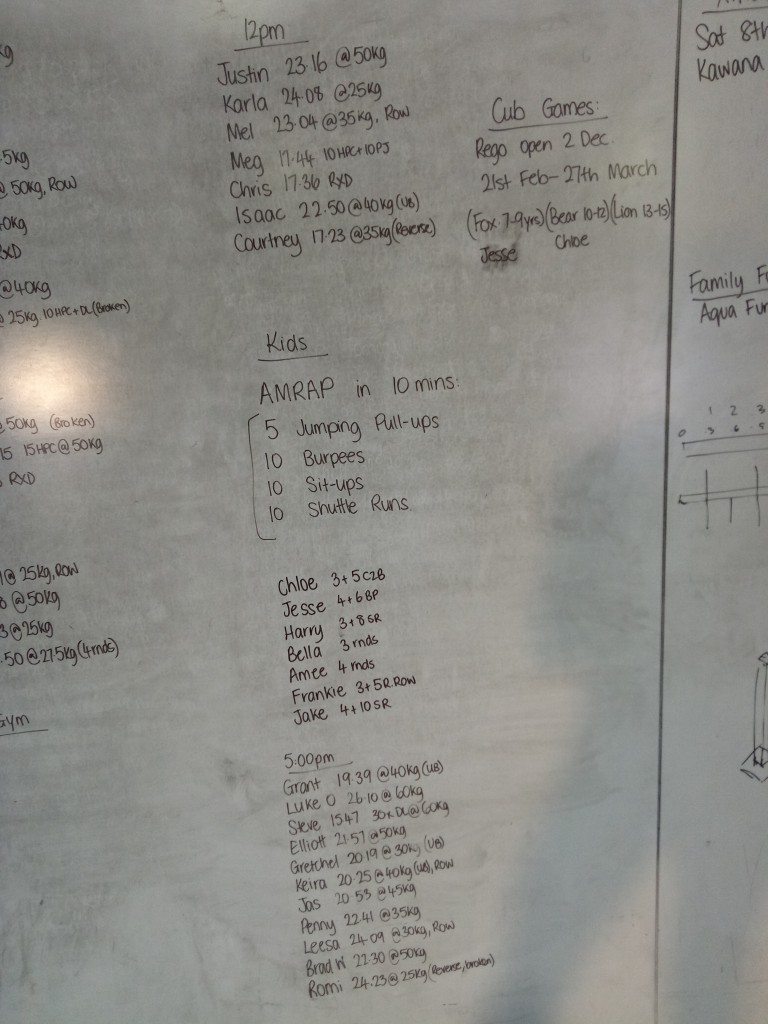 kg
5kg
@ 50kg, ROW
0kg
RXD
@40kg
@ 25kg 10HPC+DL(Broken)
@ 50kg (Broken)
15 15HPC@50kg
RXD
@ 25kg, ROW
@50kg
3@25kg
.50@27.5kg(4rnds)
Gym
12pm
Justin 23.16 @50kg
Karla 24.08 @25kg
Mel 23.04@35kg, ROW
Meg 17.44 10HPC+10PJ
Chris 17.36 RXD
Isaac 22.50@40kg(UB)
Courtney 17.23 @35kg(Reverse)
Kids
AMRAP in 10 mins:
5 Jumping Pull-ups
10 Burpees
10 Sit-ups
10 Shuttle Runs
Chloe 3+5 C2B
Jesse 4+6 BP
Harry 3+8 SR
Bella 3 rnds
Amee 4 rnds
Frankie 3+5R ROW
Jake 4+10 SR
5:00pm
Grant 19.39 @40kg(UB)
Luke O 26.10@60kg
Steve 15.47 30xDL@60kg
Elliott 21.57 @50kg
Gretchel 20.19@30kg(UB)
Keira 20.25@40kg(UB), ROW
Jas 20.53 @45kg
Penny 22.41 @35kg
Leesa 24.09 @30kg, ROW
Brad W 22.30 @50kg
Romi 24.23@25kg(Reverse, broken)
Cub Games:
Rego open 2 Dec.
21st Feb-27th March
(Fox 7-9yrs)(Bear 10-12)(Lion 13-15)
Jesse Chloe
Sat 8th
Kawana
Family
Aqua Fun
1 2 3
0 3 6